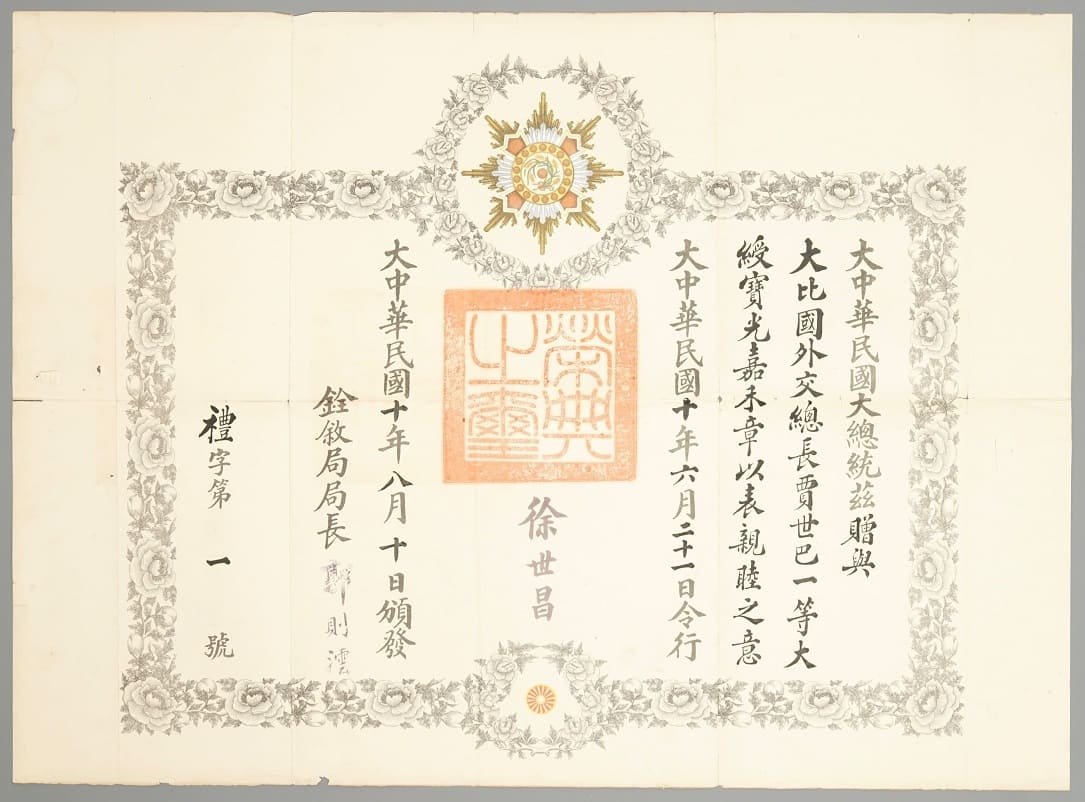 大中華民國大總統茲贈與
大比國外交總長賈世巴一等大
綬寶光嘉禾章以表親睦之意
大中華民國十年六月二十一日令行
榮典之璽
徐世昌
大中華民國十年八月十日頒發
銓敘局局長郭則澐
禮字第一號